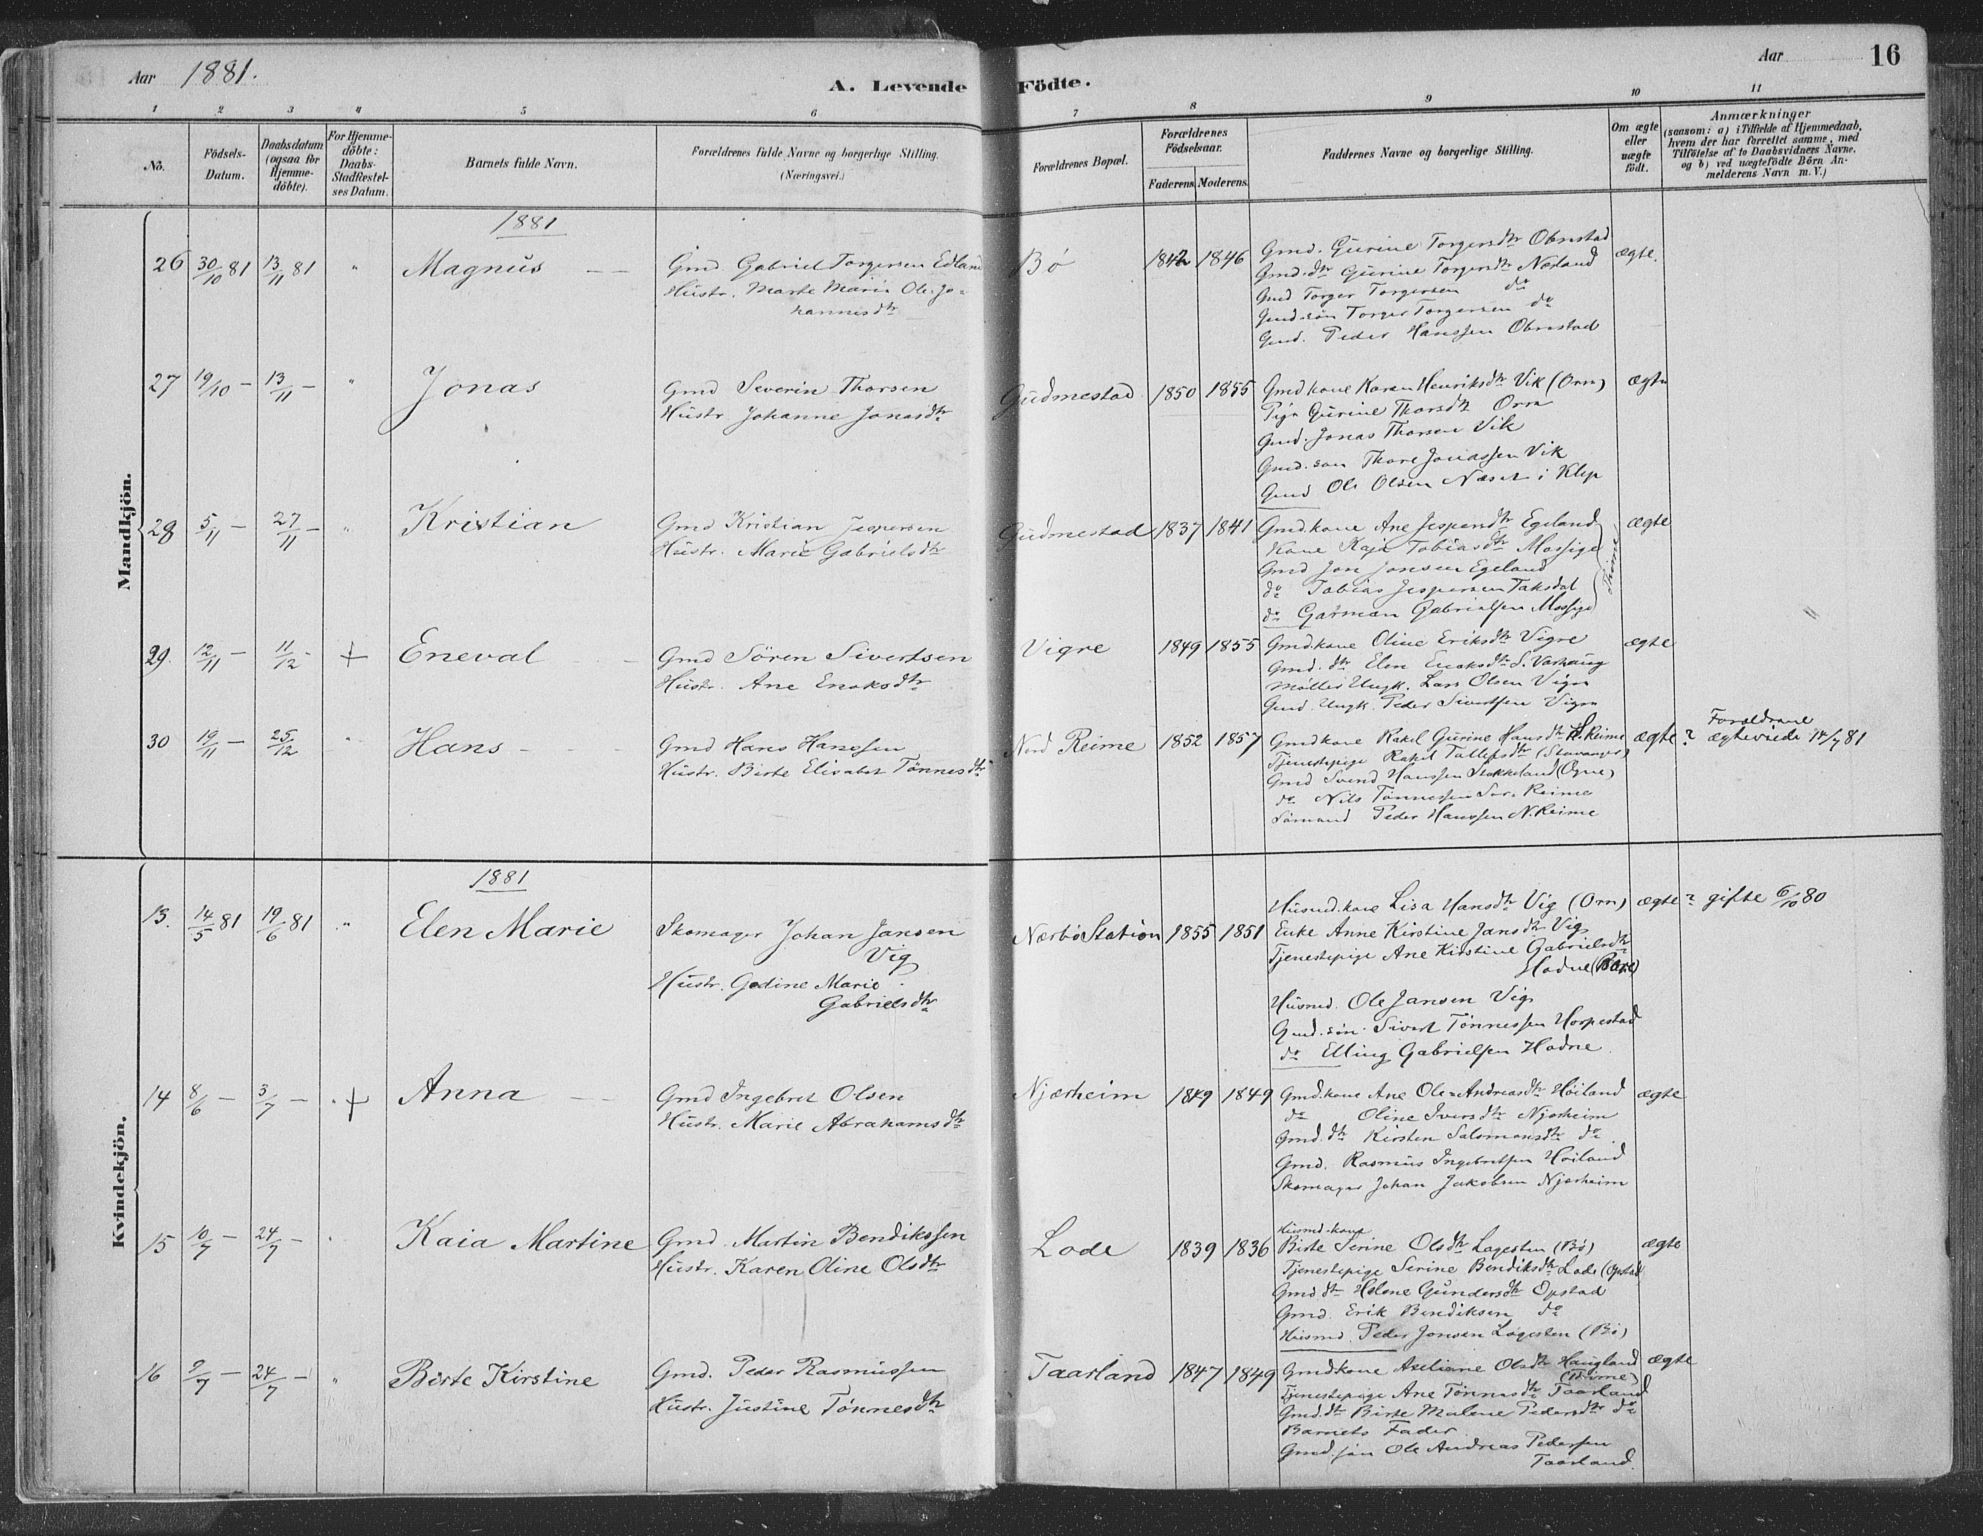 Aar 1881.
A. Levende Födte.
Aar 16
1 2 3 4 5 6 7 8 9 10 11
No.
Födsels-Datum.
Daabsdatum (ogsaa för Hjemme-döbte).
For Hjemme-döbte: Daabs-Stadfæstel-ses Datum.
Barnets fulde Navn.
Forældrenes fulde Navne og borgerlige Stilling. (Næringsvei.)
Forældrenes Bopæl.
Forældrenes Födselsaar.
Faderens. Moderens.
Faddernes Navne og borgerlige Stilling.
Om ægte eller uægte födt.
Anmærkninger
(saasom: a) i Tilfælde af Hjemmedaab, hvem der har forrettet samme, med Tilföielse af to Daabsvidners Navne, og b) ved uægtefödte Börn An-melderens Navn m. V.)
Mandkjön.
1881
26 30/10 81 13/11 81 " Magnus
Gmd. Gabriel Torgersen Edland
Hustr. Marte Marie Ole-Jo-
hannesdtr
Bø 1842 1846
Gmd. Gurine Torgersdtr Obrestad
Gmd.dtr Gurine Torgersdtr Nærland
Gmd Torger Torgersen do
Gmd.søn Torger Torgersen do
Gmd. Peder Hanssen Obrestad
ægte.
27 19/10 – 13/11 – " Jonas
Gmd Severin Thorsen
Hustr Johanne Jonasdtr
Gudmestad 1850 1855
Gmdkone Karen Henriksdtr Vik (Orre)
Pige Gurine Thorsdtr Orre
Gmd. Jonas Thorsen Vik
Gmd. søn Thore Jonassen Vik
Gmd Ole Olsen Næset i Klep
ægte
28 5/11 – 27/11 – " Kristian
Gmd Kristian Jespersen
Hustr. Marie Gabrielsdtr
Gudmestad 1837 1841
Gmdkone Ane Jespersdtr Egeland
Kone Kaja Tobiasdtr Mossige
Gmd Jon Jonsen Egeland
do Tobias Jespersen Taksdal
do Garman Gabrielsen Mossige
Thime
ægte
29. 12/11 – 11/12 – + Eneval
Gmd Sören Sivertsen
Hustr. Ane Enoksdtr
Vigre 1849 1855
Gmdkone Oline Eriksdtr Vigre
Gmd. dtr Elen Enoksdtr S. Varhaug
Møller Ungk. Lars Olsen Vigre
Gmd. Ungk. Peder Sivertsen Vigre
ægte
30 19/11 – 25/12 " Hans
Gmd Hans Hanssen
Hustr. Birte Elisabet Tønnesdtr
Nord Reime 1852 1857
Gmdkone Rakel Gurine Hansdtr S. Reime
Tjenestepige Rakel Tallefsdtr (Stavanger)
Gmd Svend Hanssen Stokkeland (Ogne)
do Nils Tønnessen Sør. Reime
Sømand Peder Hanssen N. Reime
ægte? Forældrene
ægteviede 14/7 81
Kvindekjön.
1881
13. 14/5 81 19/6 81 " Elen Marie
Skomager Johan Jansen
Vig
Hustr. Godine Marie
Gabrielsdtr
Nærbø Station 1855 1851
Husmd.kone Lisa Hansdtr Vig (Orre)
Enke Anne Kirstine Jansdtr Vig
Tjenestepige Ane Kirstine Gabrielsdtr
Hodne (Bore)
Husmd. Ole Jansen Vig
Gmd.søn. Sivert Tønnessen Horpestad
do Elling Gabrielsen Hodne.
ægte? gifte 6/10 80
14 8/6 – 3/7 – + Anna
Gmd Ingebret Olsen
Hustr. Marie Abrahamsdtr
Njærheim 1849 1849
Gmd.kone Ane Ole-Andreasdtr Høiland
do Oline Iversdtr Njærheim
Gmd. dtr Kirsten Salomonsdtr do
Gmd. Rasmus Ingebretsen Høiland
Skomager Johan Jakobsen Njærheim
ægte
15 10/7 – 24/7 " Kaia Martine
Gmd. Martin Bendikssen
Hustr. Karen Oline Olsdtr
Lode 1839 1836
Husmd.kone
Birte Serine Olsdtr Lagesten (Bø)
Tjenestepige Serine Bendiksdtr Lode (Opstad
Gmd dtr Helene Gundersdtr Opstad
Gmd. Erik Bendiksen do
Husmd. Peder Jonsen Lagesten (Bø)
ægte
16 9/7 – 24/7 – " Birte Kirstine
Gmd. Peder Rasmussen
Hustr. Justine Tønnesdtr
Taarland 1847 1849
Gmdkone Axeliane Olsdtr Haugland
(Thime)
Tjenestepige Ane Tønnesdtr Taarland
Gmd.dtr Birte Malene Pedersdtr do
Barnets Fader
Gmd.søn Ole Andreas Pedersen
Taarland.
ægte